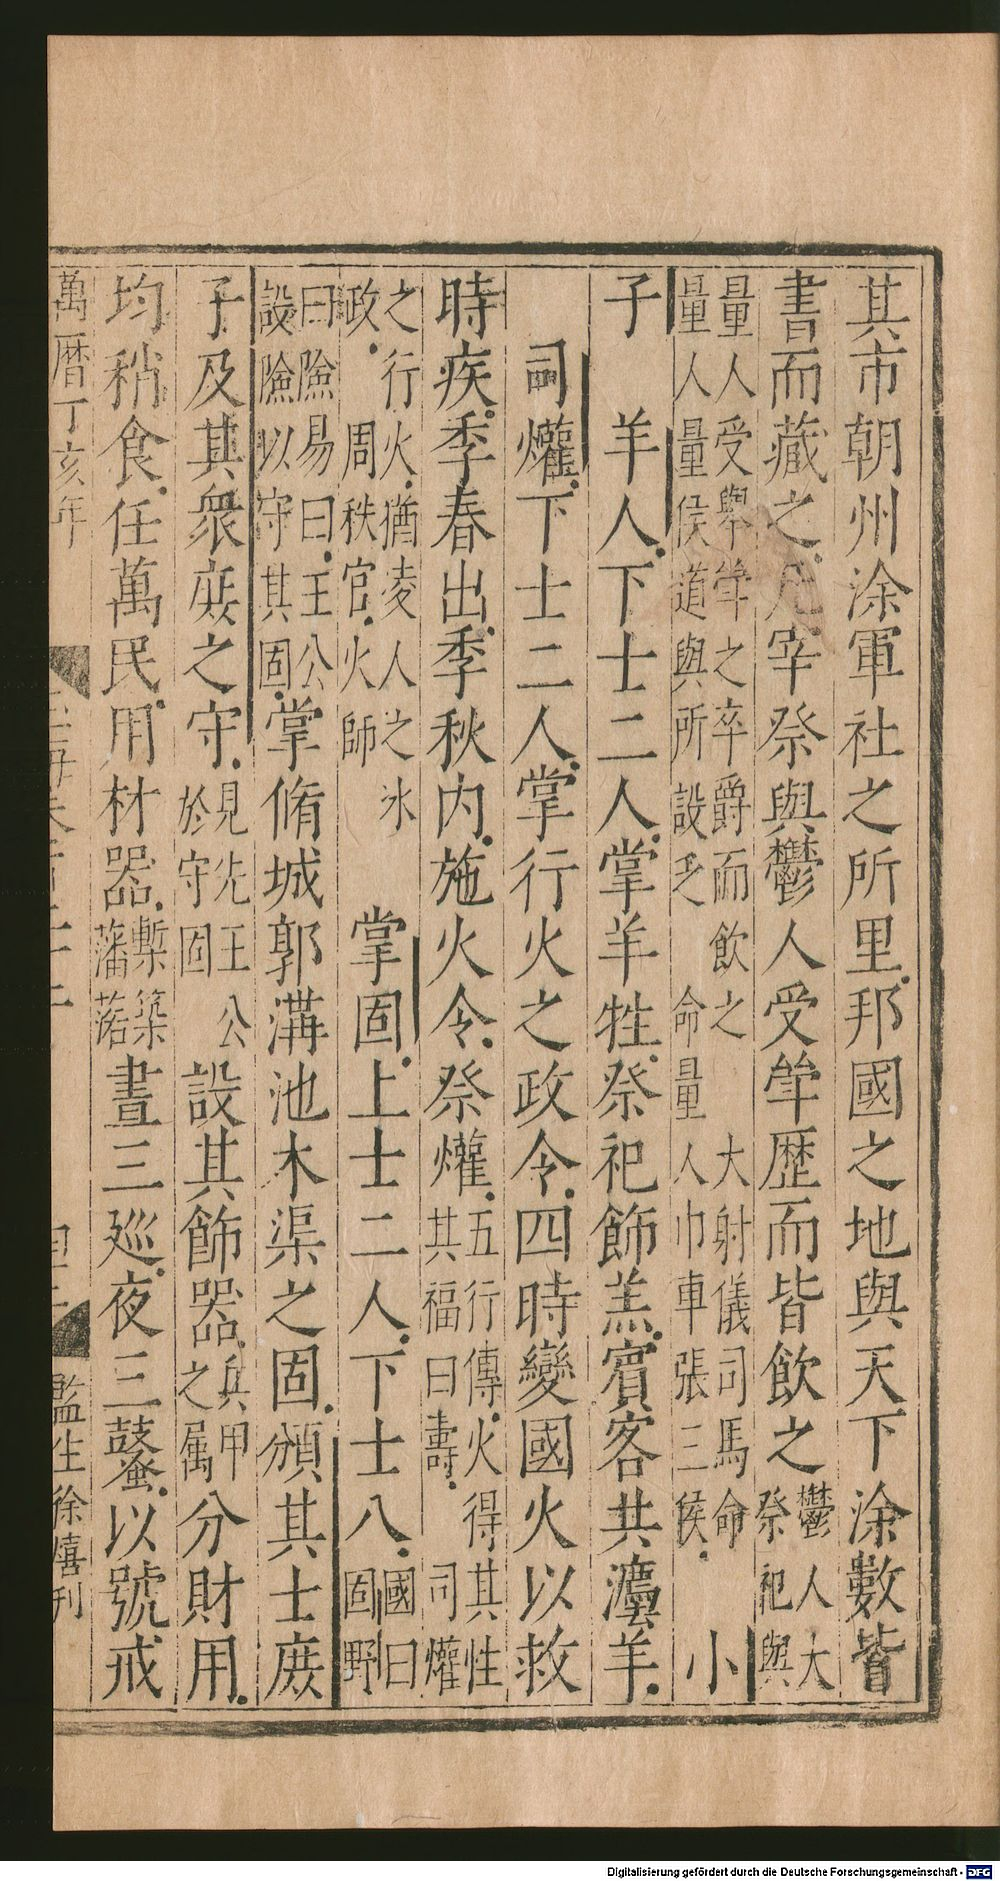 其市朝州涂軍社之所里邦國之地與天下涂數皆
書而藏之凡宰祭與鬱人受斝歷而皆飲之鬱人大
祭祀與
量人受舉斝之卒爵而飲之 大射儀司馬命
量人量侯道與所設乏 命量人巾車張三侯 小
子 羊人下士二人掌羊牲祭祀飾羔賓客共灋羊
司爟下士二人掌行火之政令四時變國火以救
時疾季春出季秋內施火令祭爟五行傳火得其性
其福曰壽 司爟
之行火猶凌人之冰
政 周秩官火師 掌固上士二人下士八國曰
固野
曰險易曰王公
設險以守其固掌脩城郭溝池木渠之固頒其士庶
子及其衆庶之守見先王公
於守固 設其飾器兵甲
之属分財用
均稍食任萬民用材器塹築
藩落晝三巡夜三鼜以號戒
萬曆丁亥年
監生徐熺刊
Digitalisierung gefördert durch die Deutsche Forschungsgemeinschaft - DFG